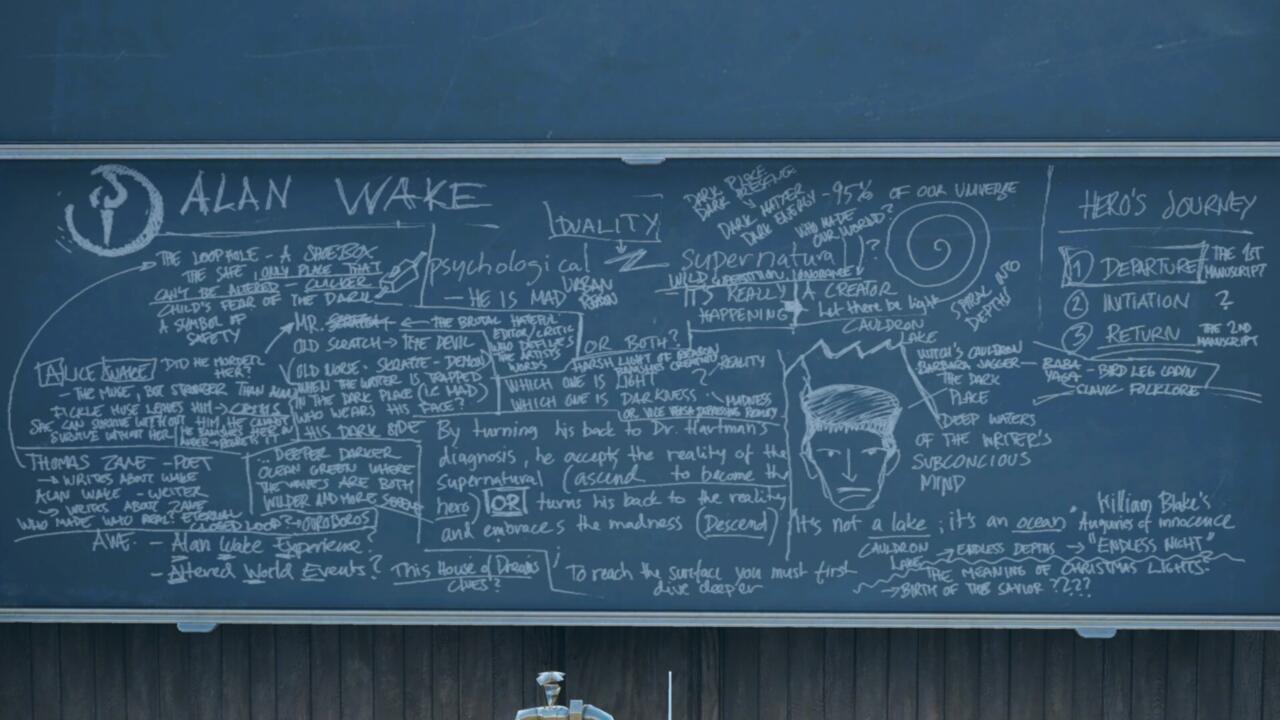 ALAN WAKE
THE LOOPHOLE - A SHOEBOX
THE SAFE, ONLY PLACE THAT
CAN'T BE ALTERED - CLICKER
CHILD'S FEAR OF THE DARK
A SYMBOL OF
SAFETY
psychological
- HE IS MAD
URBAN
DUALITY
supernatural
WILD SUPERSTITION, IGNORANCE
- IT'S REALLY
HAPPENING
DARK PLACE
DARK PRESENCE
DARK MATTER
DARK ENERGY
-95% OF OUR UNIVERSE
WHO MADE
OUR WORLD?
?
A CREATOR
Let there be light
SPIRAL INTO
DEPTHS
HERO'S JOURNEY
1 DEPARTURE
THE 1ST
MANUSCRIPT
2 INITIATION
?
3 RETURN
THE 2ND
MANUSCRIPT
MR. SCRATCH ← THE BRUTAL HATEFUL
EDITOR/CRITIC
WHO DEFILES
THE ARTIST'S
WORDS
OLD SCRATCH → THE DEVIL
(OLD NORSE - SKRATTE - DEMON)
WHEN THE WRITER IS TRAPPED
IN THE DARK PLACE (IE MAD)
WHO WEARS HIS FACE?
HIS DARK SIDE
OR BOTH?
HARSH LIGHT OF REASON
BANISHES CREATIVITY
REALITY
WHICH ONE IS LIGHT?
WHICH ONE IS DARKNESS
MADNESS
OR VICE VERSA
ALICE WAKE
DID HE MURDER
HER?
- THE MUSE, BUT STRONGER THAN ALAN
FICKLE MUSE LEAVES HIM → CRISIS
SHE CAN SURVIVE WITHOUT HIM, HE CANNOT
SURVIVE WITHOUT HER
HE BANISHES HER IN
THOMAS ZANE - POET
→ WRITES ABOUT WAKE
ALAN WAKE - WRITER
→ WRITES ABOUT ZANE
WHO MADE WHO REAL? ETERNAL
CLOSED LOOP? → OUROBOROS
DEEPER DARKER
OCEAN GREEN WHERE
THE WAVES ARE BOTH
WILDER AND MORE SERENE
AWE - Alan Wake Experience?
- Altered World Events?
By turning his back to Dr. Hartman's
diagnosis, he accepts the reality of the
supernatural (ascend to become the
hero) OR turns his back to the reality
and embraces the madness (Descend)
This House of Dreams
CLUES?
To reach the surface you must first
dive deeper
CAULDRON
LAKE
WITCH'S CAULDRON
BARBARA JAGGER
THE DARK
PLACE
BABA
YAGA
- BIRD LEG CABIN
- SLAVIC FOLKLORE
DEEP WATERS
OF THE WRITER'S
SUBCONCIOUS
MIND
It's not a lake, it's an ocean
CAULDRON
LAKE
→ ENDLESS DEPTHS →
William Blake's
"Auguries of innocence
"ENDLESS NIGHT"
THE MEANING OF CHRISTMAS LIGHTS-
→ BIRTH OF THE SAVIOR ????